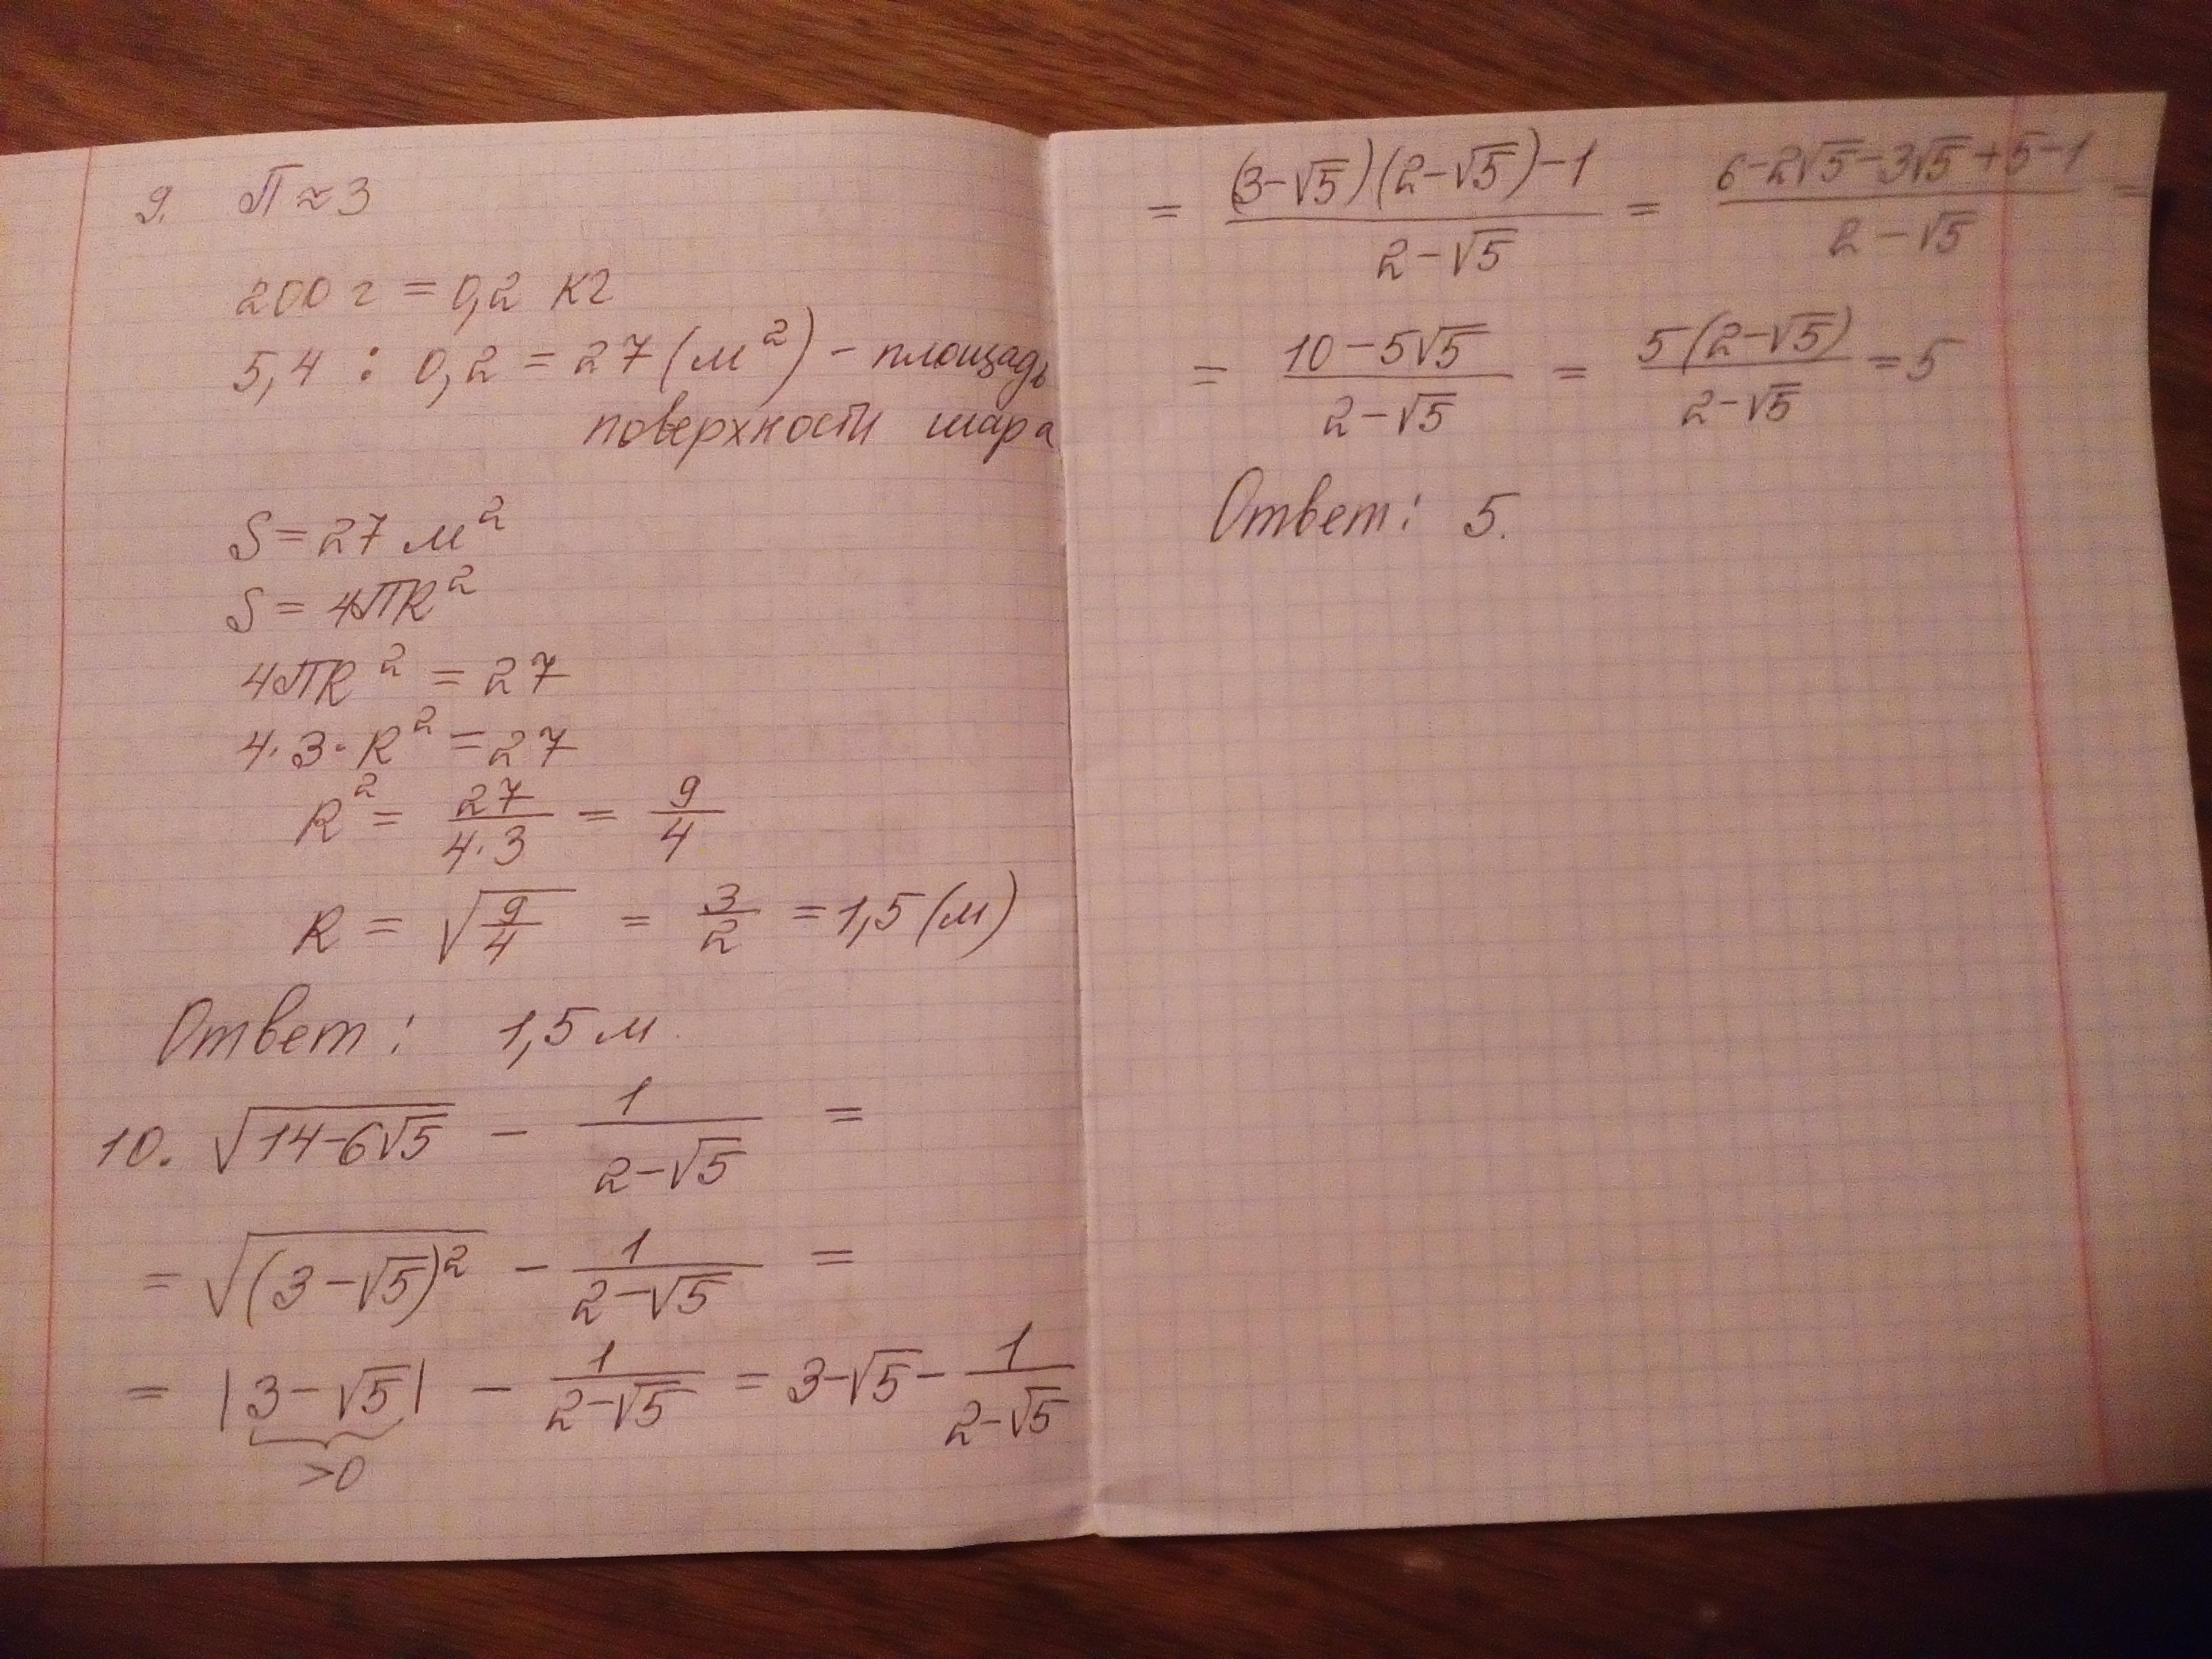 9. П ≈ 3
200 г = 0,2 кг
5,4 : 0,2 = 27 (м²) – площадь
поверхности шара
S = 27 м²
S = 4ПR²
4ПR² = 27
4·3·R² = 27
R² = 27/(4·3) = 9/4
R = √(9/4) = 3/2 = 1,5 (м)
Ответ: 1,5 м.
10. √(14-6√5) - 1/(2-√5) =
= √((3-√5)²) - 1/(2-√5) =
= |3-√5| - 1/(2-√5) = 3-√5 - 1/(2-√5)
>0
= ((3-√5)(2-√5)-1)/(2-√5) = (6-2√5-3√5+5-1)/(2-√5) =
= (10-5√5)/(2-√5) = 5(2-√5)/(2-√5) = 5
Ответ: 5.